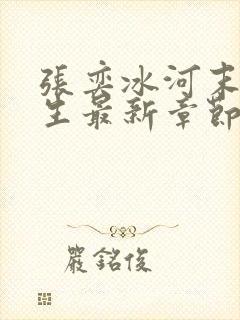 張奕冰河末
生最新章節
嚴銘俊